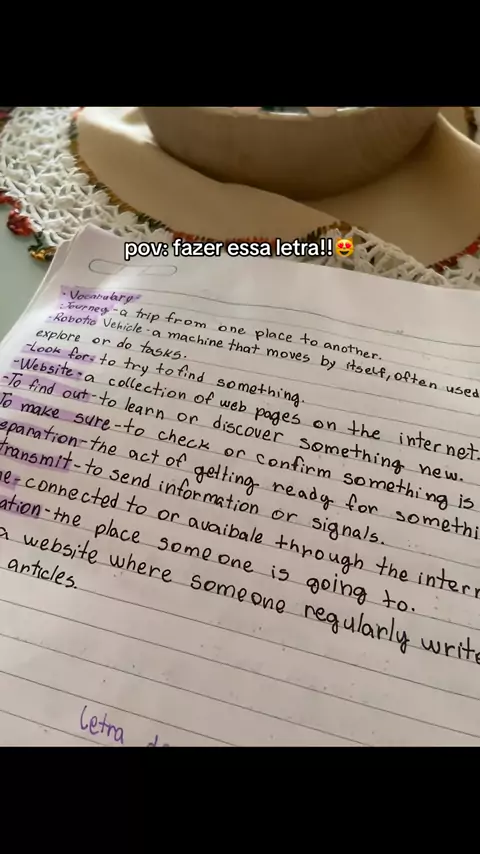 pov: fazer essa letra!!😍
-Vocabulary
-Journey-a trip from one place to another.
-Robotic Vehicle-a machine that moves by itself, often used
explore or do tasks.
-Look for-to try to find something.
-Website-a collection of web pages on the internet.
-To find out-to learn or discover something new.
To make sure-to check or confirm something is
eparation-the act of gelting ready for somethi
transmit-to send information or signals.
ne-connected to or avaibale through the intern
ation-the place someone is going to.
a website where someone regularly write
articles.
letra